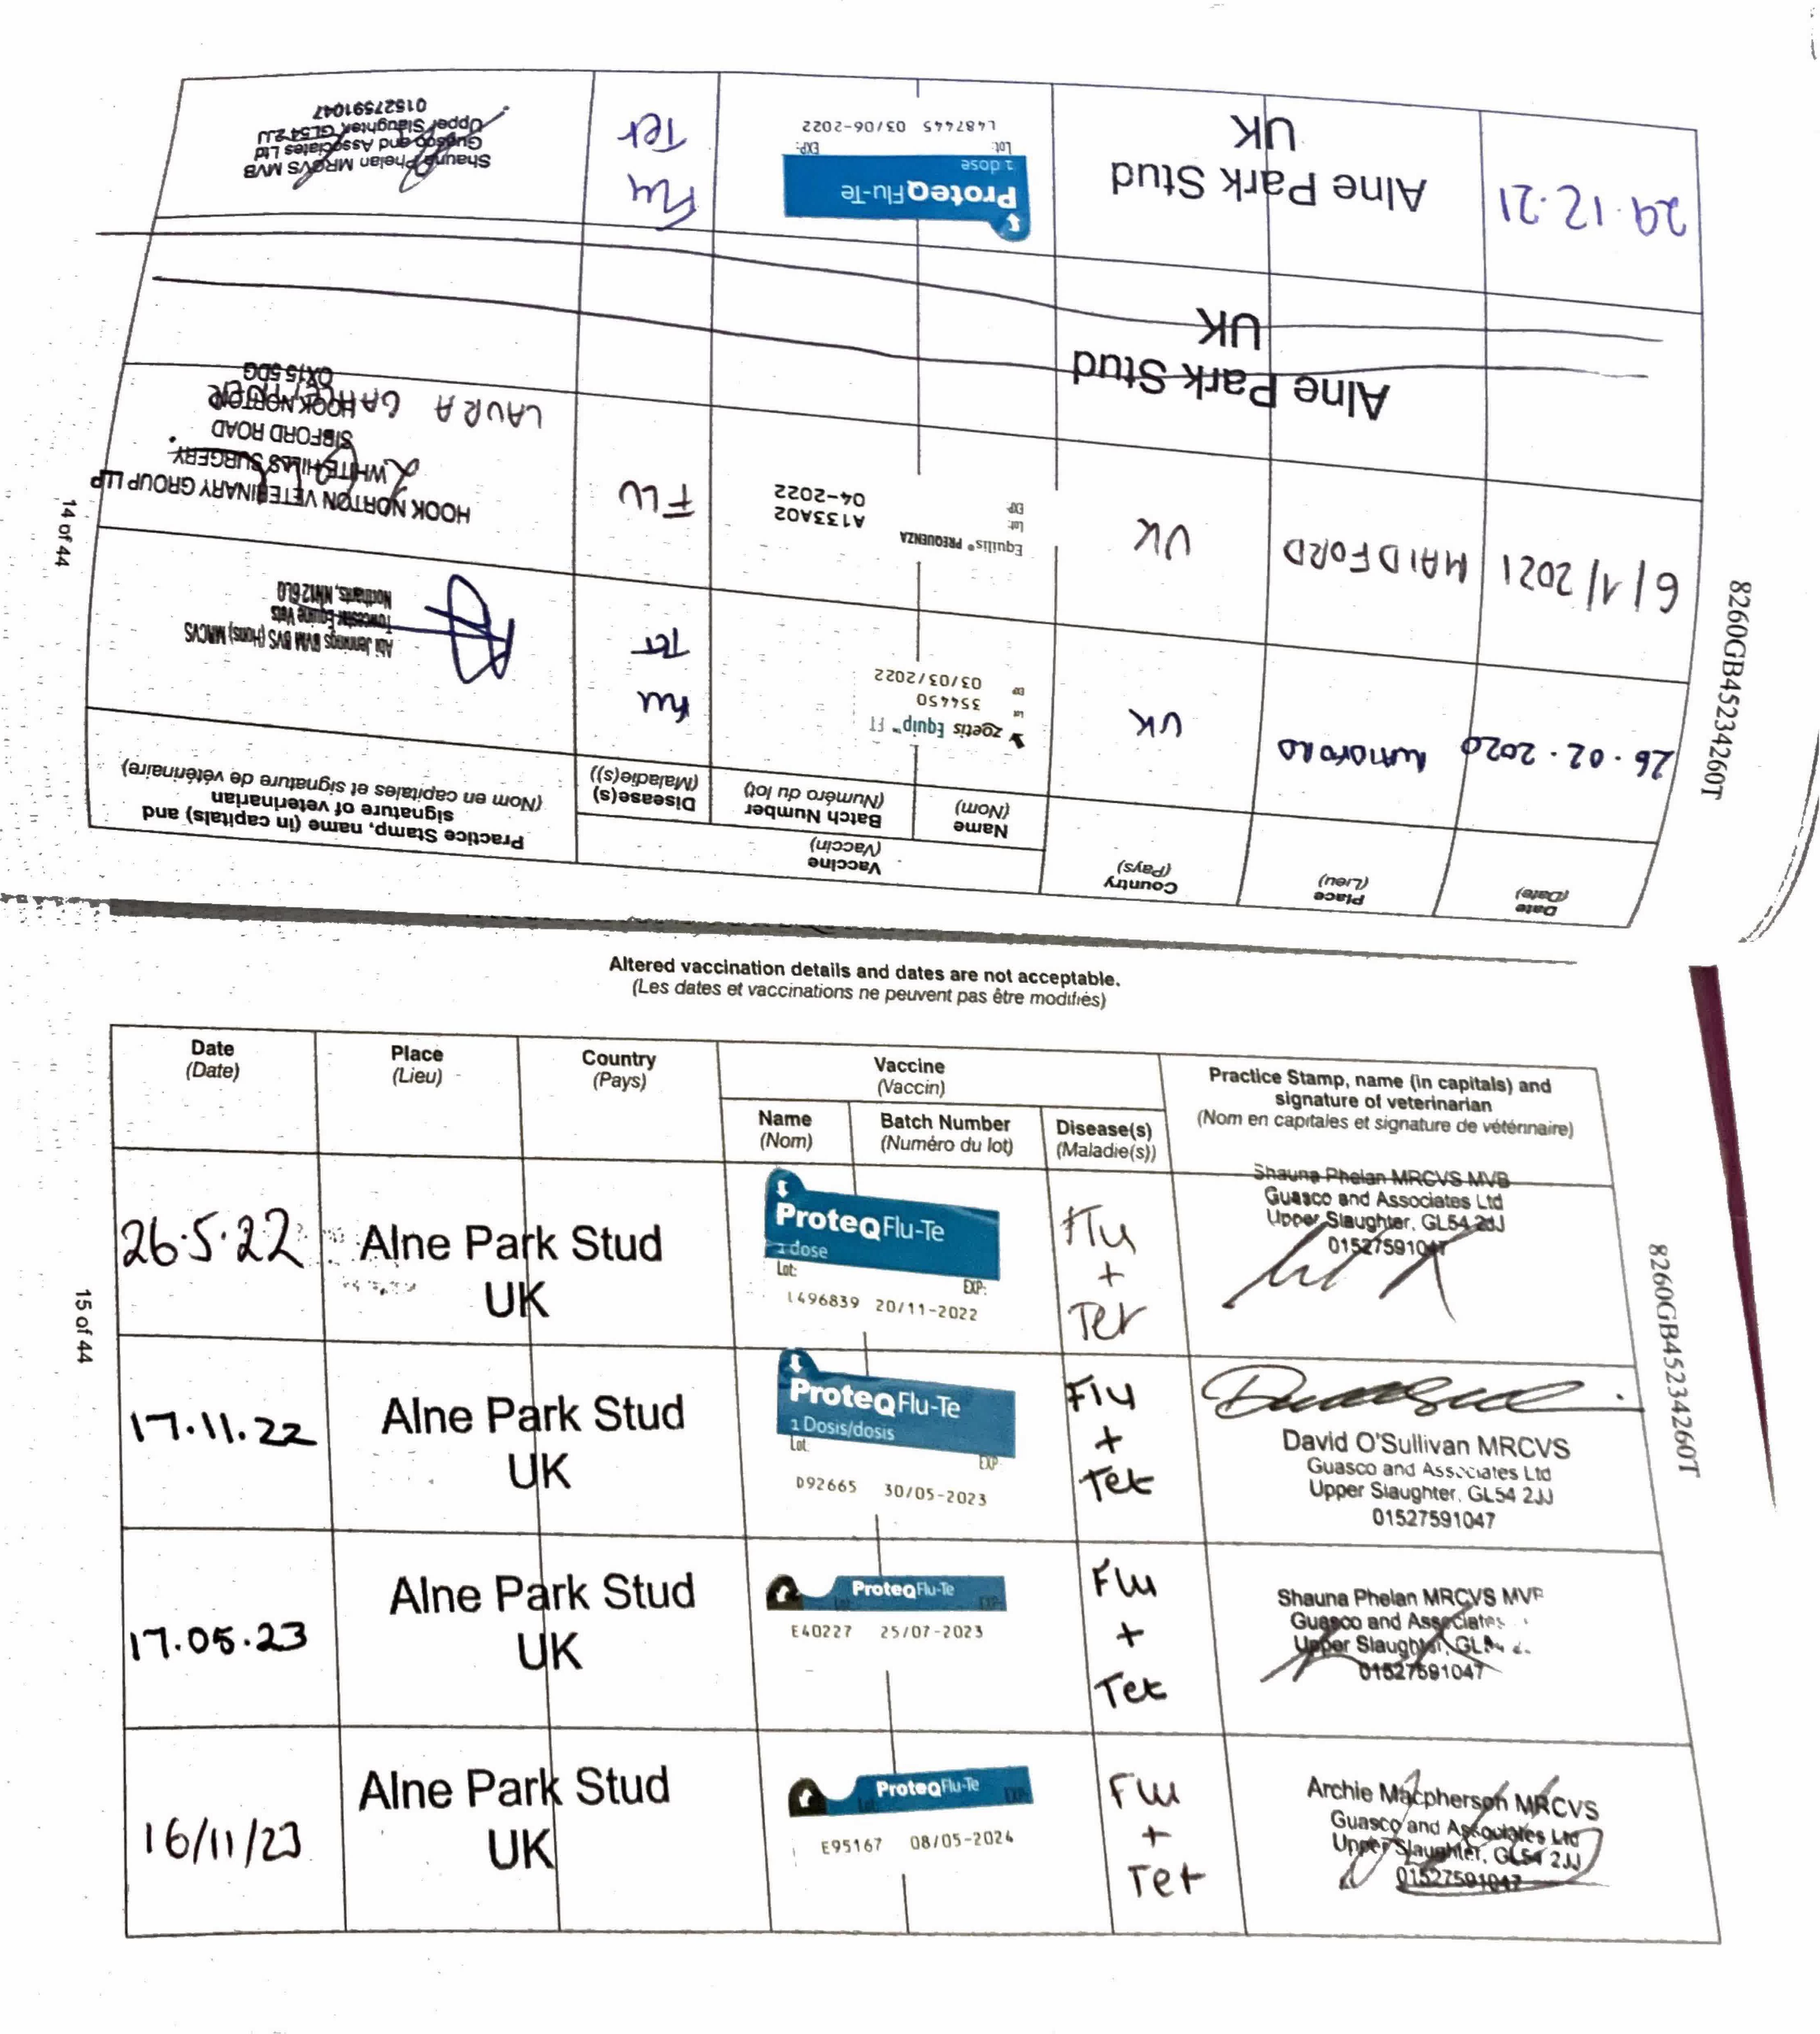 Date
(Date)
Place
(Lieu)
Country
(Pays)
Vaccine
(Vaccin)
Name
(Nom)
Batch Number
(Numéro du lot)
Disease(s)
(Maladie(s))
Practice Stamp, name (in capitals) and
signature of veterinarian
(Nom en capitales et signature de vétérinaire)
26.02.2020
UK
zoetis Equip™ FT
Lot
354450
EXP
03/03/2022
Flu
Tet
Abi Jennings BVM BVS (Hons) MRCVS
Towcester Equine Vets
Northants, NN12 6LQ
6/1/2021
MAIDFORD
UK
Equilis® PREQUENZA
Lot:
EXP:
A133A02
04-2022
FLU
HOOK NORTON VETERINARY GROUP LLP
WHITE HILLS SURGERY
SIBFORD ROAD
HOOK NORTON
OX15 5DG
LAURA
Alne Park Stud
UK
29.12.21
Alne Park Stud
UK
ProteqFlu-Te
1 dose
Lot:
EXP:
L487445 03/06-2022
Flu
Tet
Shauna Phelan MRCVS MVB
Guasco and Associates Ltd
Upper Slaughter, GL54 2JJ
01527591047
14 of 44
8260GB45234260T
Altered vaccination details and dates are not acceptable.
(Les dates et vaccinations ne peuvent pas être modifiés)
Date
(Date)
Place
(Lieu)
Country
(Pays)
Vaccine
(Vaccin)
Name
(Nom)
Batch Number
(Numéro du lot)
Disease(s)
(Maladie(s))
Practice Stamp, name (in capitals) and
signature of veterinarian
(Nom en capitales et signature de vétérinaire)
26.5.22
Alne Park Stud
UK
ProteqFlu-Te
1 dose
Lot:
EXP:
L496839 20/11-2022
Flu
+
Tet
Shauna Phelan MRCVS MVB
Guasco and Associates Ltd
Upper Slaughter, GL54 2JJ
01527591047
17.11.22
Alne Park Stud
UK
ProteqFlu-Te
1 Dosis/dosis
Lot
EXP
D92665 30/05-2023
Flu
+
Tet
David O'Sullivan MRCVS
Guasco and Associates Ltd
Upper Slaughter, GL54 2JJ
01527591047
17.05.23
Alne Park Stud
UK
ProteqFlu-Te
Lot
EXP
E40227 25/07-2023
Flu
+
Tet
Shauna Phelan MRCVS
Guasco and Associates
Upper Slaughter,
01527591047
16/11/23
Alne Park Stud
UK
ProteqFlu-Te
Lot
EXP
E95167 08/05-2024
Flu
+
Tet
Archie Macpherson MRCVS
Guasco and Associates Ltd
Upper Slaughter, GL54 2JJ
01527591047
15 of 44
8260GB45234260T